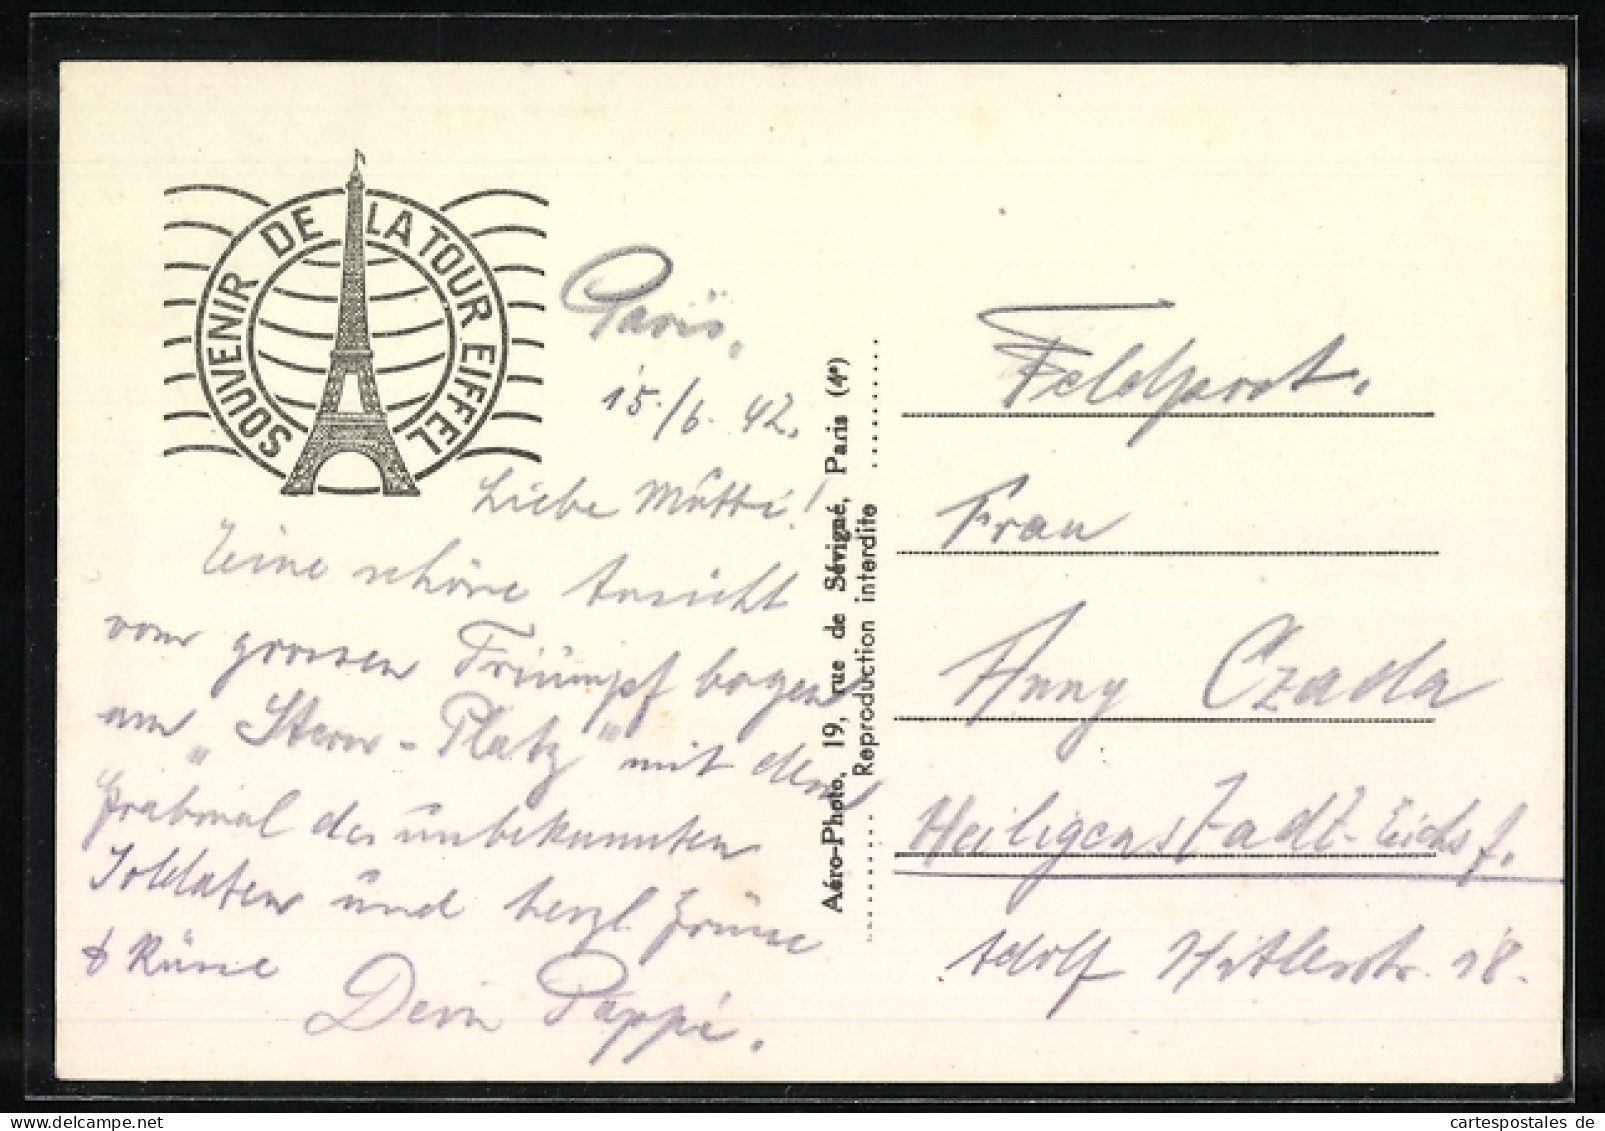 SOUVENIR DE LA TOUR EIFFEL
Paris,
15./6. 42.
Liebe Mutti!
Eine schöne Ansicht
vom grossen Triumpf bogen
am „Stern-Platz" mit dem
Grabmal des unbekannten
Soldaten und herzl. Grüsse
& Küsse
Dein Pappi.
Aéro-Photo, 19, rue de Sévigné, Paris (4e)
Reproduction interdite
Feldpost.
Frau
Anny Czada
Heiligenstadt-Eichsf.
Adolf Hitlerstr. 18.
cartespostales.de